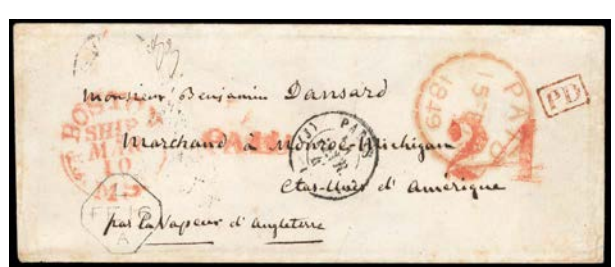 Monsieur Benjamin Dansard
Marchand à Monroe-Michigan
Etas-Unis d' Amérique
par la Vapeur d' Angleterre
BOSTON
SHIP
MS
(J) PARIS
PAID
1849
PAID
24
PD